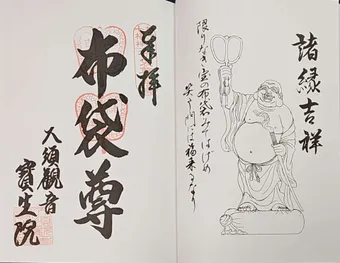 諸縁吉祥
限りなき宝の布袋みてばげめ
笑う門には福来るなり
奉拝
布袋尊
人頭観音
寳生院